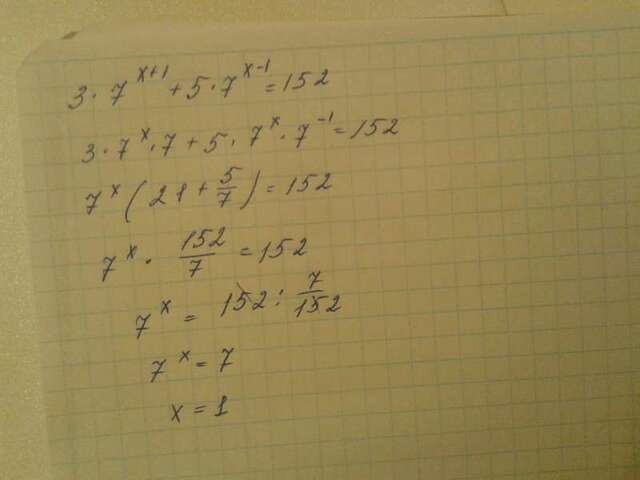 3 · 7^{x+1} + 5 · 7^{x-1} = 152
3 · 7^x · 7 + 5 · 7^x · 7^{-1} = 152
7^x (21 + \frac{5}{7}) = 152
7^x · \frac{152}{7} = 152
7^x = 152 : \frac{7}{152}
7^x = 7
x = 1